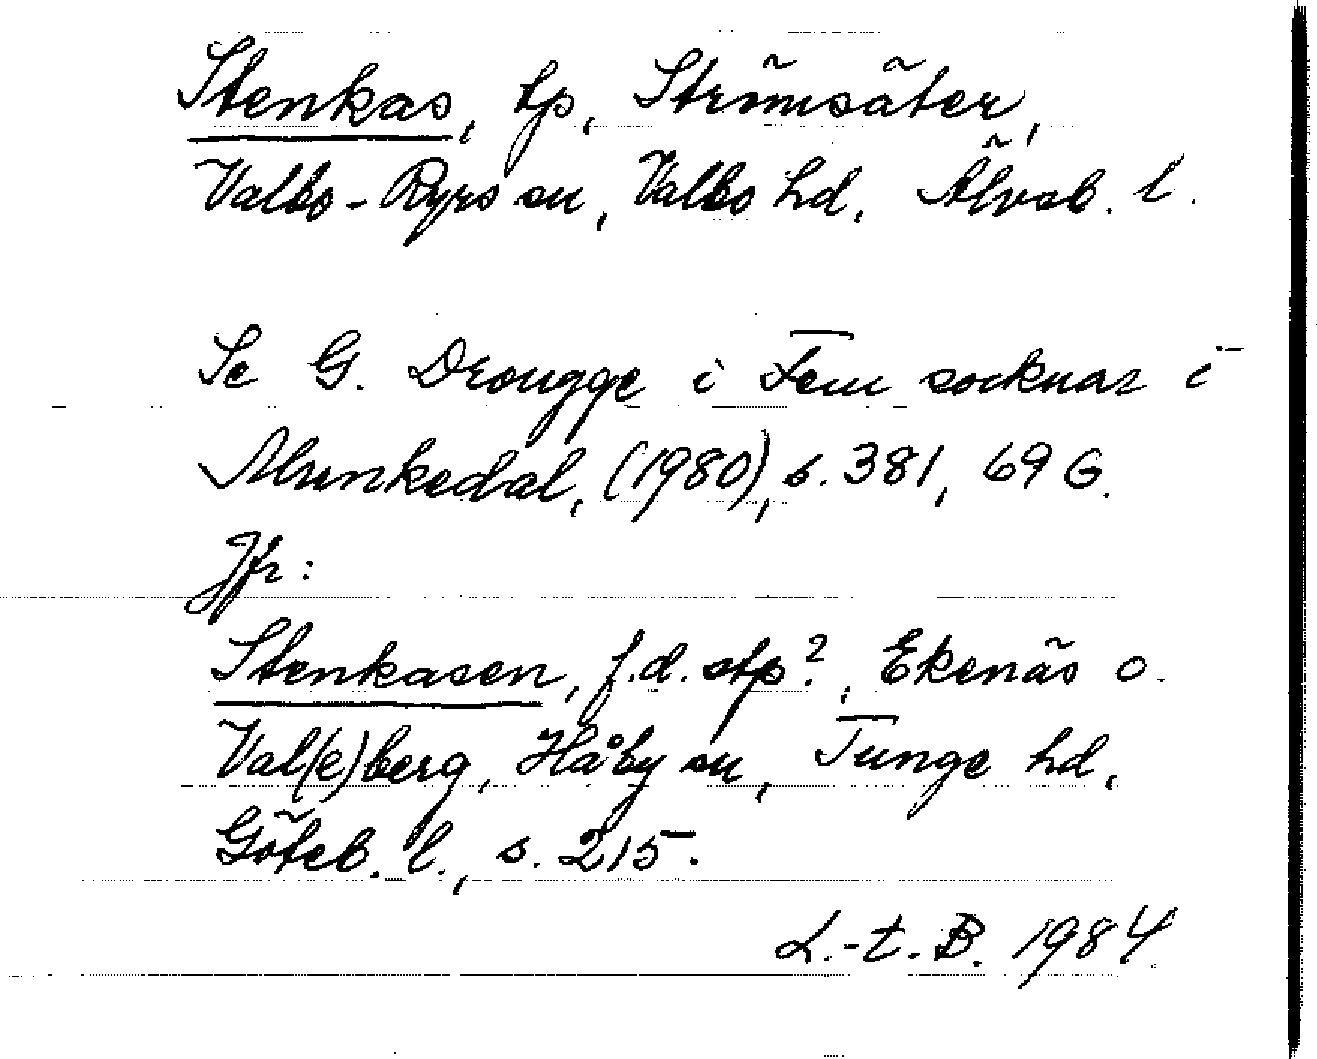 Stenkas, tp, Strömsäter,
Valbo-Ryrs sn, Valbo hd, Älvsb. l.
Se G. Drougge i Fem socknar i
Munkedal, (1980), s. 381, 69 G.
Jfr:
Stenkasen, f.d. stp?, Ekenäs o.
Val(e)berg, Håby sn, Tunge hd,
Göteb. l., s. 215.
L.-t. B. 1984